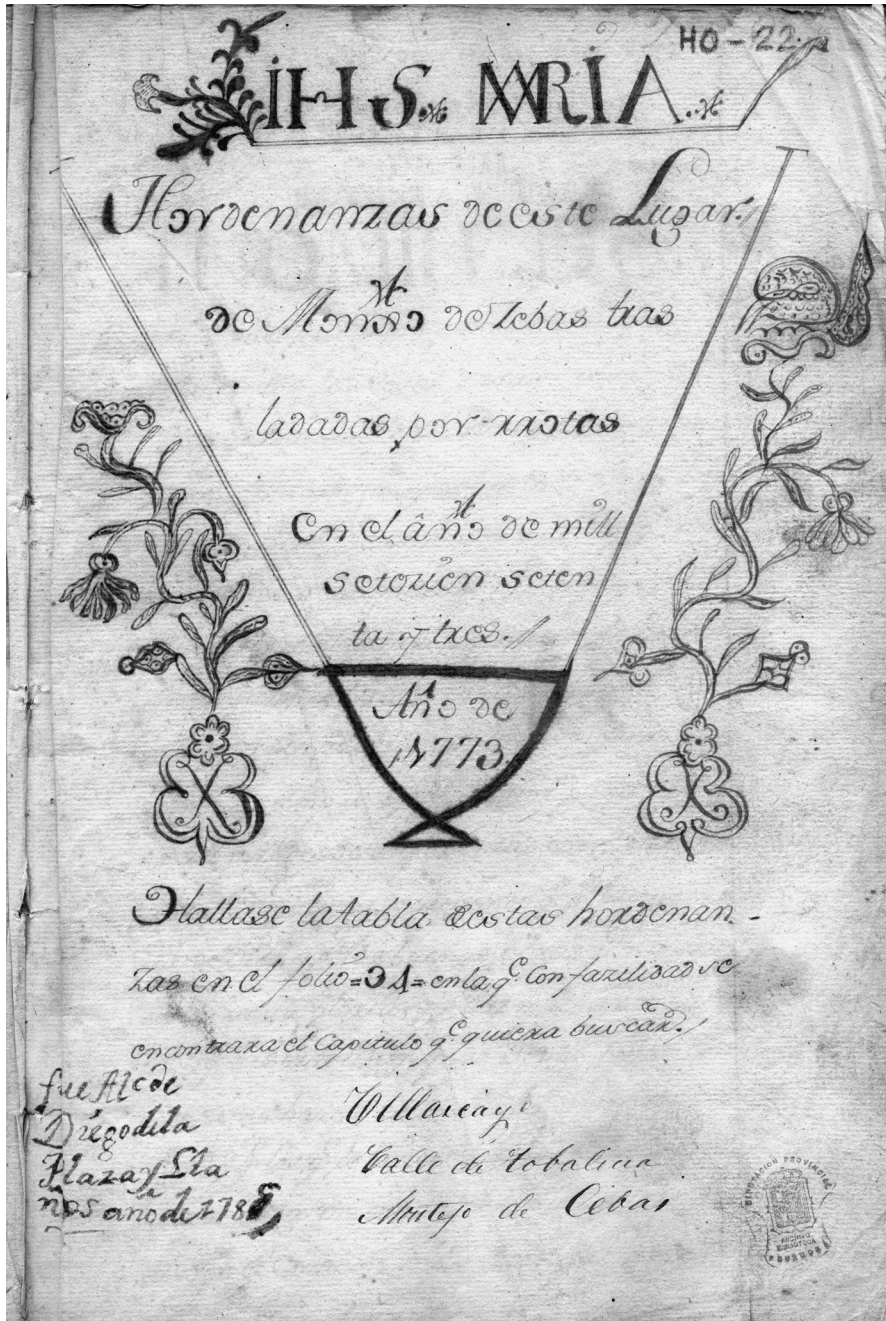 HO-22
IHS MARIA
Hordenanzas de este Lugar
de de Zebas tras
ladadas por
En el año de mill
seteien seten
ta y tres
Año de
1773
Hallase la tabla destas hordenan-
zas en el folio=34= en la qe. Con fazilidad se
encontrara el Capitulo qe. quiera buscar
fue Alcde
Diego dela
Plaza y Lla
nos año de 178
Villarcayo
Valle de Tobalina
Montejo de Cebas
DIPUTACION PROVINCIAL
ARCHIVO
BIBLIOTECA